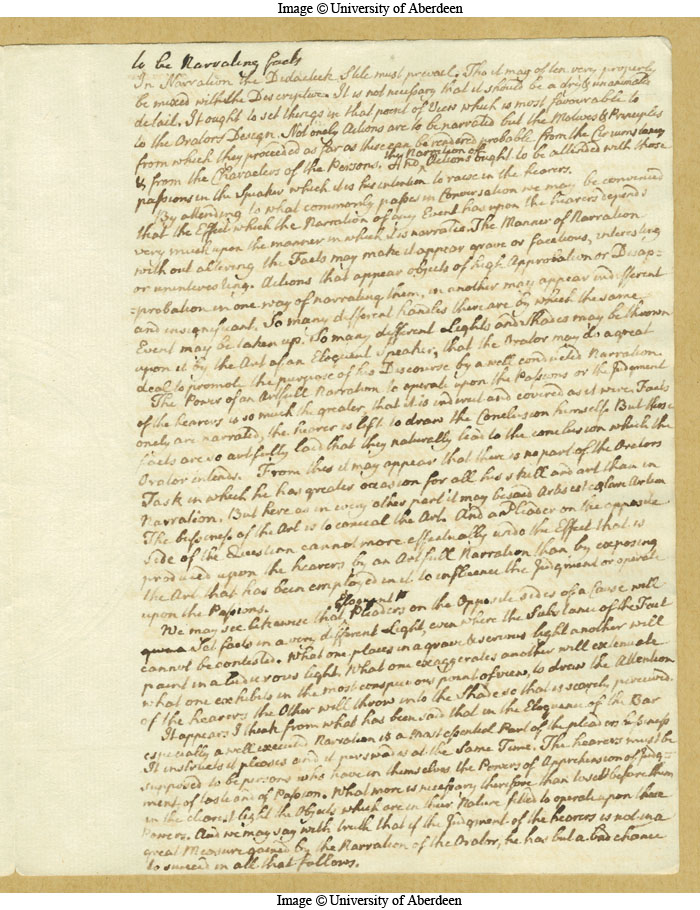 Image © University of Aberdeen
to be Narrating facts
In Narration the Didactick Stile must prevail. Tho it may often very properly
be mixed with the Descriptive. It is not necessary that it should be a dry & unanimated
detail. It ought to set things in that point of View which is most favourable to
to the Orators Design. Not onely Actions are to be narrated but the Motives & Principles
from which they proceeded as far as these can be rendered probable from the Circumstances
& from the Characters of the Persons. the Narration of Actions ought to be attended with those
passions in the Speaker which it is his intention to raise in the hearers.
By attending to what commonly passes in Conversation we may be convinced
that the Effect which the Narration of any Event has upon the hearers depends
very much upon the manner in which it is narrated. The Manner of Narration
without altering the Facts may make it appear grave or facetious, interesting
or uninteresting. Actions that appear objects of high Approbation or Disap-
=probation in one way of narrating them, in another may appear indifferent
and insignificant, So many different handles there are by which the same
Event may be taken up. So many different Lights and Shades may be thrown
upon it by the Art of an Eloquent Speaker, that the Orator may do a great
deal to promote the purpose of his Discourse by a well conducted Narration
The Power of an Artfull Narration to operate upon the Passions or the Judgment
of the hearers is so much the greater, that it is indirect and covered as it were. Facts
onely are narrated, the hearer is left to draw the Conclusion himself. But those
facts are so artfully laid that they naturally lead to the conclusion which the
Orator intends. From this it may appear that there is no part of the Orators
Task in which he has greater occasion for all his skill and art than in
Narration. But here as in every other part it may be said Artis est celare Artem
The bussiness of the Art is to conceal the Art. And a Pleader on the opposite
side of the Question cannot more effectually undo the Effect that is
produced upon the hearers by an Artfull Narration than by exposing
the Art that has been employed in it to influence the Judgment or operate
upon the Passions.
We may see likewise that Eloquent Pleaders on the Opposite sides of a Cause will
set facts in a very different Light, even where the Substance of the Fact
cannot be contested. What one places in a grave & serious light another will
paint in a ludicrous light. What one exaggerates another will extenuate
what one exhibits in the most conspicuous point of view, to draw the Attention
of the hearers the Other will throw into the Shade so that is scarcely perceived.
It appears I think from what has been said that in the Eloquence of the Bar
especially a well executed Narration is a most essential Part of the pleaders Business
It instructs it pleases and it perswades at the Same Time. The hearers must be
supposed to be persons who have in themselves the Powers of Apprehension of Judg-
ment of taste and of Passion. What more is necessary therefore than to set before them
in the clearest light the Objects which are in their Nature fitted to operate upon these
Powers. And we may say with truth that if the Judgment of the hearers is not in a
great Measure gained by the Narration of the Orator, he has but a bad chance
to succeed in all that follows.
Image © University of Aberdeen